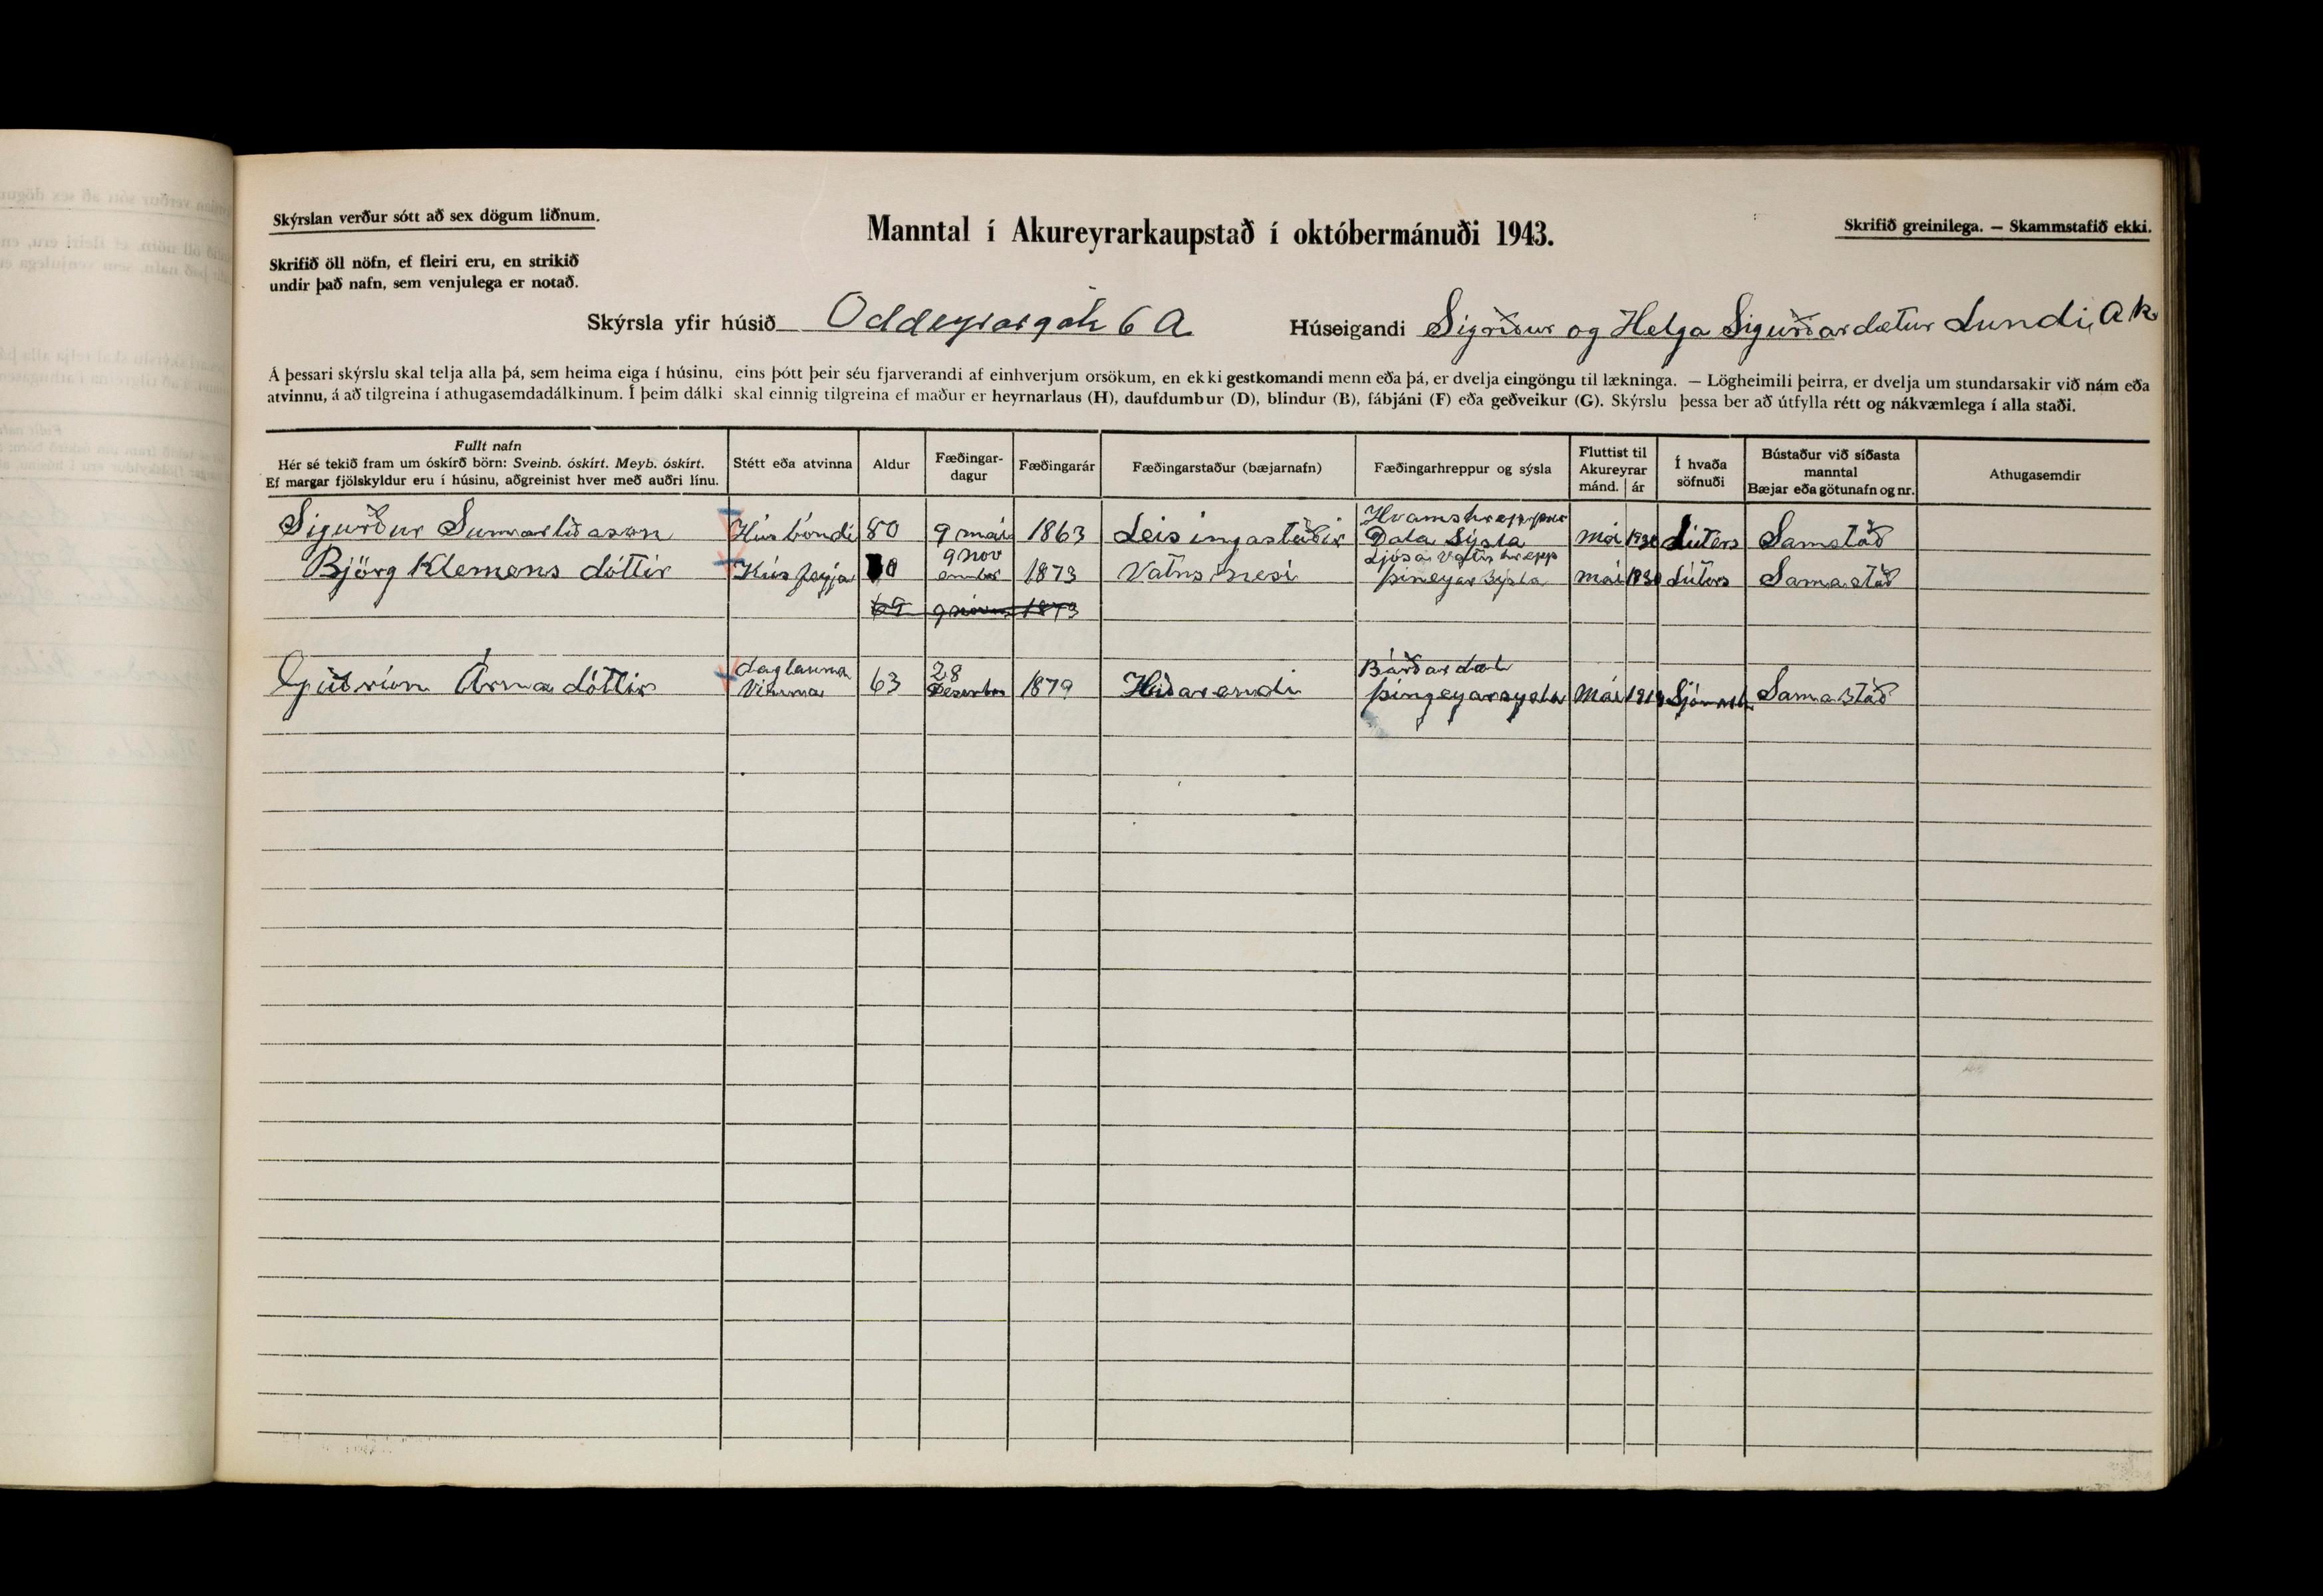 Skýrslan verður sótt að sex dögum liðnum.
Manntal í Akureyrarkaupstað í októbermánuði 1943.
Skrifið greinilega. — Skammstafið ekki.
Skrifið öll nöfn, ef fleiri eru, en strikið
undir það nafn, sem venjulega er notað.
Skýrsla yfir húsið Oddeyrargötu 6 A Húseigandi Sigríður og Helga Sigurðardætur Lundi, Ak.
Á þessari skýrslu skal telja alla þá, sem heima eiga í húsinu, eins þótt þeir séu fjarverandi af einhverjum orsökum, en ekki gestkomandi menn eða þá, er dvelja eingöngu til lækninga. — Lögheimili þeirra, er dvelja um stundarsakir við nám eða
atvinnu, á að tilgreina í athugasemdadálkinum. Í þeim dálki skal einnig tilgreina ef maður er heyrnarlaus (H), daufdumbur (D), blindur (B), fábjáni (F) eða geðveikur (G). Skýrslu þessa ber að útfylla rétt og nákvæmlega í alla staði.
Fullt nafn
Hér sé tekið fram um óskírð börn: Sveinb. óskírt. Meyb. óskírt.
Ef margar fjölskyldur eru í húsinu, aðgreinist hver með auðri línu.
Stétt eða atvinna
Aldur
Fæðingar-
dagur
Fæðingarár
Fæðingarstaður (bæjarnafn)
Fæðingarhreppur og sýsla
Fluttist til
Akureyrar
mánd. ár
Í hvaða
söfnuði
Bústaður við síðasta
manntal
Bæjar eða götunafn og nr.
Athugasemdir
Sigurður Sumarliðason Húsbóndi 80 9 mai 1863 Leisingastaðir Hvamshreppur
Dala Sýsla mai 1930 Lúters Samastað
Björg Klemens dóttir Húsfreyja 70 9 nov
ember 1873 Vatnsnesi Ljósavatnshrepp
Þineyar Sýsla mai 1930 Lúters Samastað
69 9 nóvem 1873
Guðrún Árnadóttir daglauna
Vinna 63 28
Desember 1879 Hliðarendi Bárðardal
Þingeyarsysla Mai Samastað